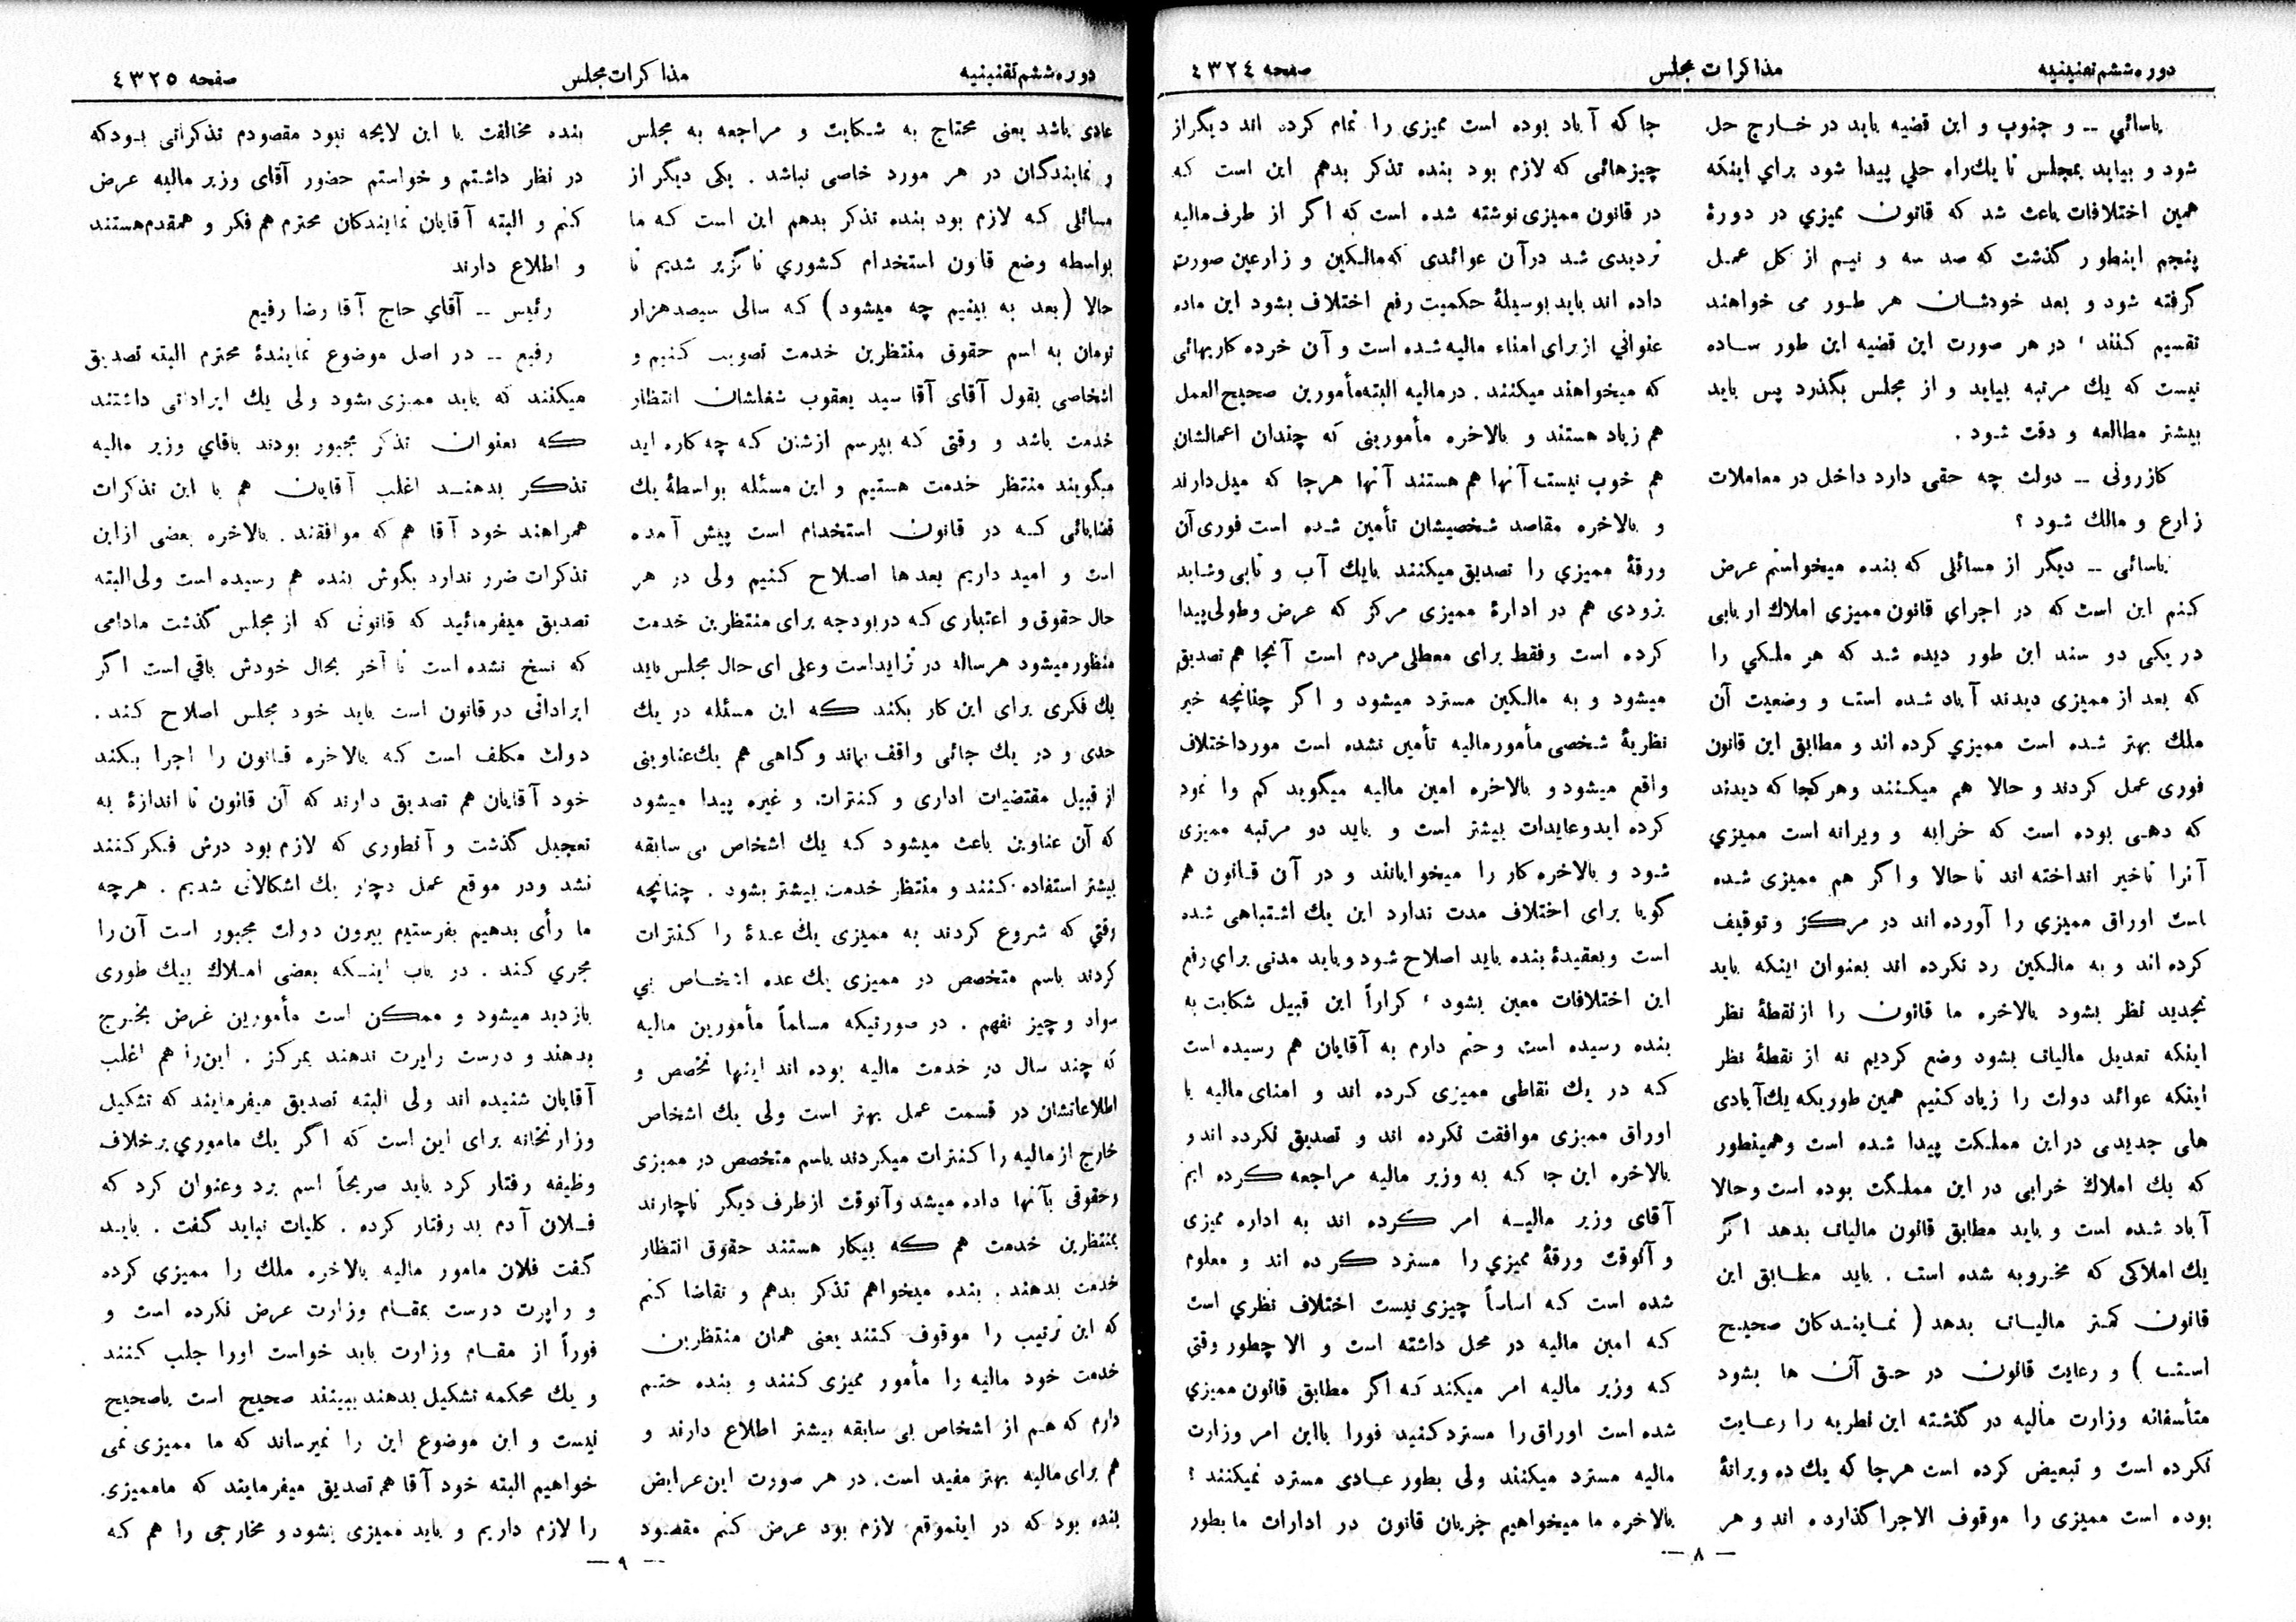 دوره ششم تقنینیه
مذاکرات مجلس
صفحه ٤٣٢٤
یاسائي -- و جنوب و این قضیه باید در خارج حل
شود و بیاید بمجلس تا یك راه حلي پیدا شود براي اینکه
همین اختلافات باعث شد که قانون ممیزي در دورهٔ
پنجم اینطور گذشت که صد سه و نیم از کل عمل
گرفته شود و بعد خودشان هر طور می خواهند
تقسیم کنند ، در هر صورت این قضیه این طور ساده
نیست که یك مرتبه بیاید و از مجلس بگذرد پس باید
بیشتر مطالعه و دقت شود .
کازرونی -- دولت چه حقی دارد داخل در معاملات
زارع و مالك شود ؟
یاسائی -- دیگر از مسائلی که بنده میخواستم عرض
کنم این است که در اجرای قانون ممیزی املاك اربابی
در یکی دو سند این طور دیده شد که هر ملکي را
که بعد از ممیزی دیدند آباد شده است و وضعیت آن
ملك بهتر شده است ممیزي کرده اند و مطابق این قانون
فوری عمل کردند و حالا هم میکنند وهرکجا که دیدند
که دهی بوده است که خرابه و ویرانه است ممیزي
آنرا تاخیر انداخته اند تا حالا و اگر هم ممیزی شده
است اوراق ممیزي را آورده اند در مرکز و توقیف
کرده اند و به مالکین رد نکرده اند بعنوان اینکه باید
تجدید نظر بشود بالاخره ما قانون را از نقطهٔ نظر
اینکه تعدیل مالیات بشود وضع کردیم نه از نقطهٔ نظر
اینکه عوائد دولت را زیاد کنیم همین طوریکه یك آبادی
های جدیدی در این مملکت پیدا شده است وهمینطور
که یك املاك خرابی در این مملکت بوده است وحالا
آباد شده است و باید مطابق قانون مالیات بدهد اگر
یك املاکی که مخروبه شده است . باید مطابق این
قانون کمتر مالیات بدهد ( نمایندکان صحیح
است ) و رعایت قانون در حق آن ها بشود
متأسفانه وزارت مالیه در گذشته این نظریه را رعایت
نکرده است و تبعیض کرده است هرجا که یك ده ویرانهٔ
بوده است ممیزی را موقوف الاجرا گذارده اند و هر
جا که آباد بوده است ممیزی را تمام کرده اند دیگر از
چیزهائی که لازم بود بنده تذکر بدهم این است که
در قانون ممیزی نوشته شده است که اگر از طرف مالیه
تردیدی شد درآن عوائدی که مالکین و زارعین صورت
داده اند باید بوسیلهٔ حکمیت رفع اختلاف بشود این ماده
عنواني از برای امناء مالیه شده است و آن خرده کاریهائی
که میخواهند میکنند . در مالیه البته مأمورین صحیح العمل
هم زیاد هستند و بالاخره مأمورینی که چندان اعمالشان
هم خوب نیست آنها هم هستند آنها هرجا که میل دارند
و بالاخره مقاصد شخصیشان تأمین شده است فوری آن
ورقهٔ ممیزي را تصدیق میکنند بایك آب و تابی وشاید
بزودی هم در ادارهٔ ممیزی مرکز که عرض وطولی پیدا
کرده است وفقط برای معطلی مردم است آنجا هم تصدیق
میشود و به مالکین مسترد میشود و اگر چنانچه خیر
نظریهٔ شخصی مأمور مالیه تأمین نشده است مورد اختلاف
واقع میشود و بالاخره امین مالیه میگوید کم وا نمود
کرده اید وعایدات بیشتر است و باید دو مرتبه ممیزی
شود و بالاخره کار را میخوابانند و در آن قانون هم
گویا برای اختلاف مدت ندارد این یك اشتباهی شده
است وبعقیدهٔ بنده باید اصلاح شود و باید مدتی براي رفع
این اختلافات معین بشود ، کراراً این قبیل شکایت به
بنده رسیده است وحتم دارم به آقایان هم رسیده است
که در یك نقاطی ممیزی کرده اند و امنای مالیه با
اوراق ممیزی موافقت نکرده اند و تصدیق نکرده اند و
بالاخره این جا که به وزیر مالیه مراجعه کرده ایم
آقای وزیر مالیه امر کرده اند به اداره ممیزی
و آنوقت ورقهٔ ممیزي را مسترد کرده اند و معلوم
شده است که اساساً چیزی نیست اختلاف نظري است
که امین مالیه در محل داشته است و الا چطور وقتی
که وزیر مالیه امر میکند که اگر مطابق قانون ممیزي
شده است اوراق را مسترد کنید فورا بااین امر وزارت
مالیه مسترد میکنند ولی بطور عادی مسترد نمیکنند ؟
بالاخره ما میخواهیم جریان قانون در ادارات ما بطور
— ۸ —
دوره ششم تقنینیه
مذاکرات مجلس
صفحه ٤٣٢٥
عادی باشد یعنی محتاج به شکایت و مراجعه به مجلس
و نمایندگان در هر مورد خاصی نباشد . یکی دیگر از
مسائلی که لازم بود بنده تذکر بدهم این است که ما
بواسطه وضع قانون استخدام کشوري ناگزیر شدیم تا
حالا (بعد به بینیم چه میشود) که سالی سیصد هزار
تومان به اسم حقوق منتظرین خدمت تصویب کنیم و
اشخاصی بقول آقای آقا سید یعقوب شغلشان انتظار
خدمت باشد و وقتی که بپرسم ازشان که چه کاره اید
میگویند منتظر خدمت هستیم و این مسئله بواسطهٔ یك
قضایائی که در قانون استخدام است پیش آمده
است و امید داریم بعدها اصلاح کنیم ولی در هر
حال حقوق و اعتباری که در بودجه برای منتظرین خدمت
منظور میشود هرساله در تزاید است وعلی ای حال مجلس باید
یك فکری برای این کار بکند که این مسئله در یك
حدی و در یك جائی واقف بماند و گاهی هم یك عناوینی
از قبیل مقتضیات اداری و کنترات و غیره پیدا میشود
که آن عناوین باعث میشود که یك اشخاص بی سابقه
بیشتر استفاده کنند و منتظر خدمت بیشتر بشود . چنانچه
وقتي که شروع کردند به ممیزی یك عدهٔ را کنترات
کردند باسم متخصص در ممیزی یك عده اشخاص بي
سواد و چیز نفهم . در صورتیکه مسلماً مأمورین مالیه
که چند سال در خدمت مالیه بوده اند اینها تخصص و
اطلاعاتشان در قسمت عمل بهتر است ولی یك اشخاص
خارج از مالیه را کنترات میکردند باسم متخصص در ممیزی
وحقوقی بآنها داده میشد وآنوقت از طرف دیگر ناچارند
بمنتظرین خدمت هم که بیکار هستند حقوق انتظار
خدمت بدهند . بنده میخواهم تذکر بدهم و تقاضا کنم
که این ترتیب را موقوف کنند یعنی همان منتظرین
خدمت خود مالیه را مأمور ممیزی کنند و بنده حتم
دارم که هم از اشخاص بی سابقه بیشتر اطلاع دارند و
هم برای مالیه بهتر مفید است. در هر صورت این عرایض
بنده بود که در اینموقع لازم بود عرض کنم مقصود
بنده مخالفت با این لایحه نبود مقصودم تذکراتی بود که
در نظر داشتم و خواستم حضور آقای وزیر مالیه عرض
کنم و البته آقایان نمایندکان محترم هم فکر و همقدم هستند
و اطلاع دارند
رئیس -- آقاي حاج آقا رضا رفیع
رفیع -- در اصل موضوع نمایندهٔ محترم البته تصدیق
میکنند که باید ممیزی بشود ولی یك ایراداتی داشتند
که بعنوان تذکر مجبور بودند باقاي وزیر مالیه
تذکر بدهند اغلب آقایان هم با این تذکرات
همراهند خود آقا هم که موافقند . بالاخره بعضی ازاین
تذکرات ضرر ندارد بگوش بنده هم رسیده است ولی البته
تصدیق میفرمائید که قانونی که از مجلس گذشت مادامی
که نسخ نشده است تا آخر بحال خودش باقی است اگر
ایراداتی در قانون است باید خود مجلس اصلاح کند .
دولت مکلف است که بالاخره قانون را اجرا بکند
خود آقایان هم تصدیق دارند که آن قانون تا اندازهٔ به
تعجیل گذشت و آنطوری که لازم بود درش فکر کنند
نشد ودر موقع عمل دچار یك اشکالاتی شدیم . هرچه
ما رأی بدهیم بفرستیم بیرون دولت مجبور است آن را
مجري کند . در باب اینکه بعضی املاك بیك طوری
بازدید میشود و ممکن است مأمورین غرض بخرج
بدهند و درست راپرت ندهند بمرکز . این را هم اغلب
آقایان شنیده اند ولی البته تصدیق میفرمایند که تشکیل
وزارتخانه برای این است که اگر یك ماموري برخلاف
وظیفه رفتار کرد باید صریحاً اسم برد وعنوان کرد که
فلان آدم بد رفتار کرده . کلیات نباید گفت . باید
گفت فلان مامور مالیه بالاخره ملك را ممیزي کرده
و راپرت درست بمقام وزارت عرض نکرده است و
فوراً از مقام وزارت باید خواست اورا جلب کنند
و یك محکمه تشکیل بدهند ببینند صحیح است یاصحیح
نیست و این موضوع این را نمیرساند که ما ممیزی نمی
خواهیم البته خود آقا هم تصدیق میفرمایند که ماممیزی
را لازم داریم و باید ممیزی بشود و مخارجی را هم که
— ۹ —